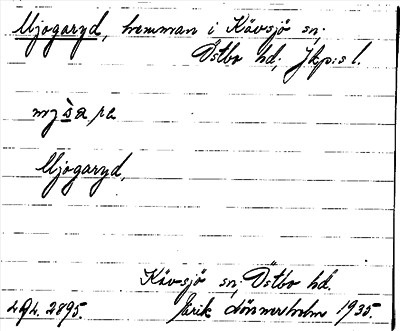 Mjogaryd, hemman i Kävsjö sn;
Östbo hd; Jkp:s l.
Mjogaryd,
Kävsjö sn; Östbo hd.
2895. Erik Lönnerholm 1935.